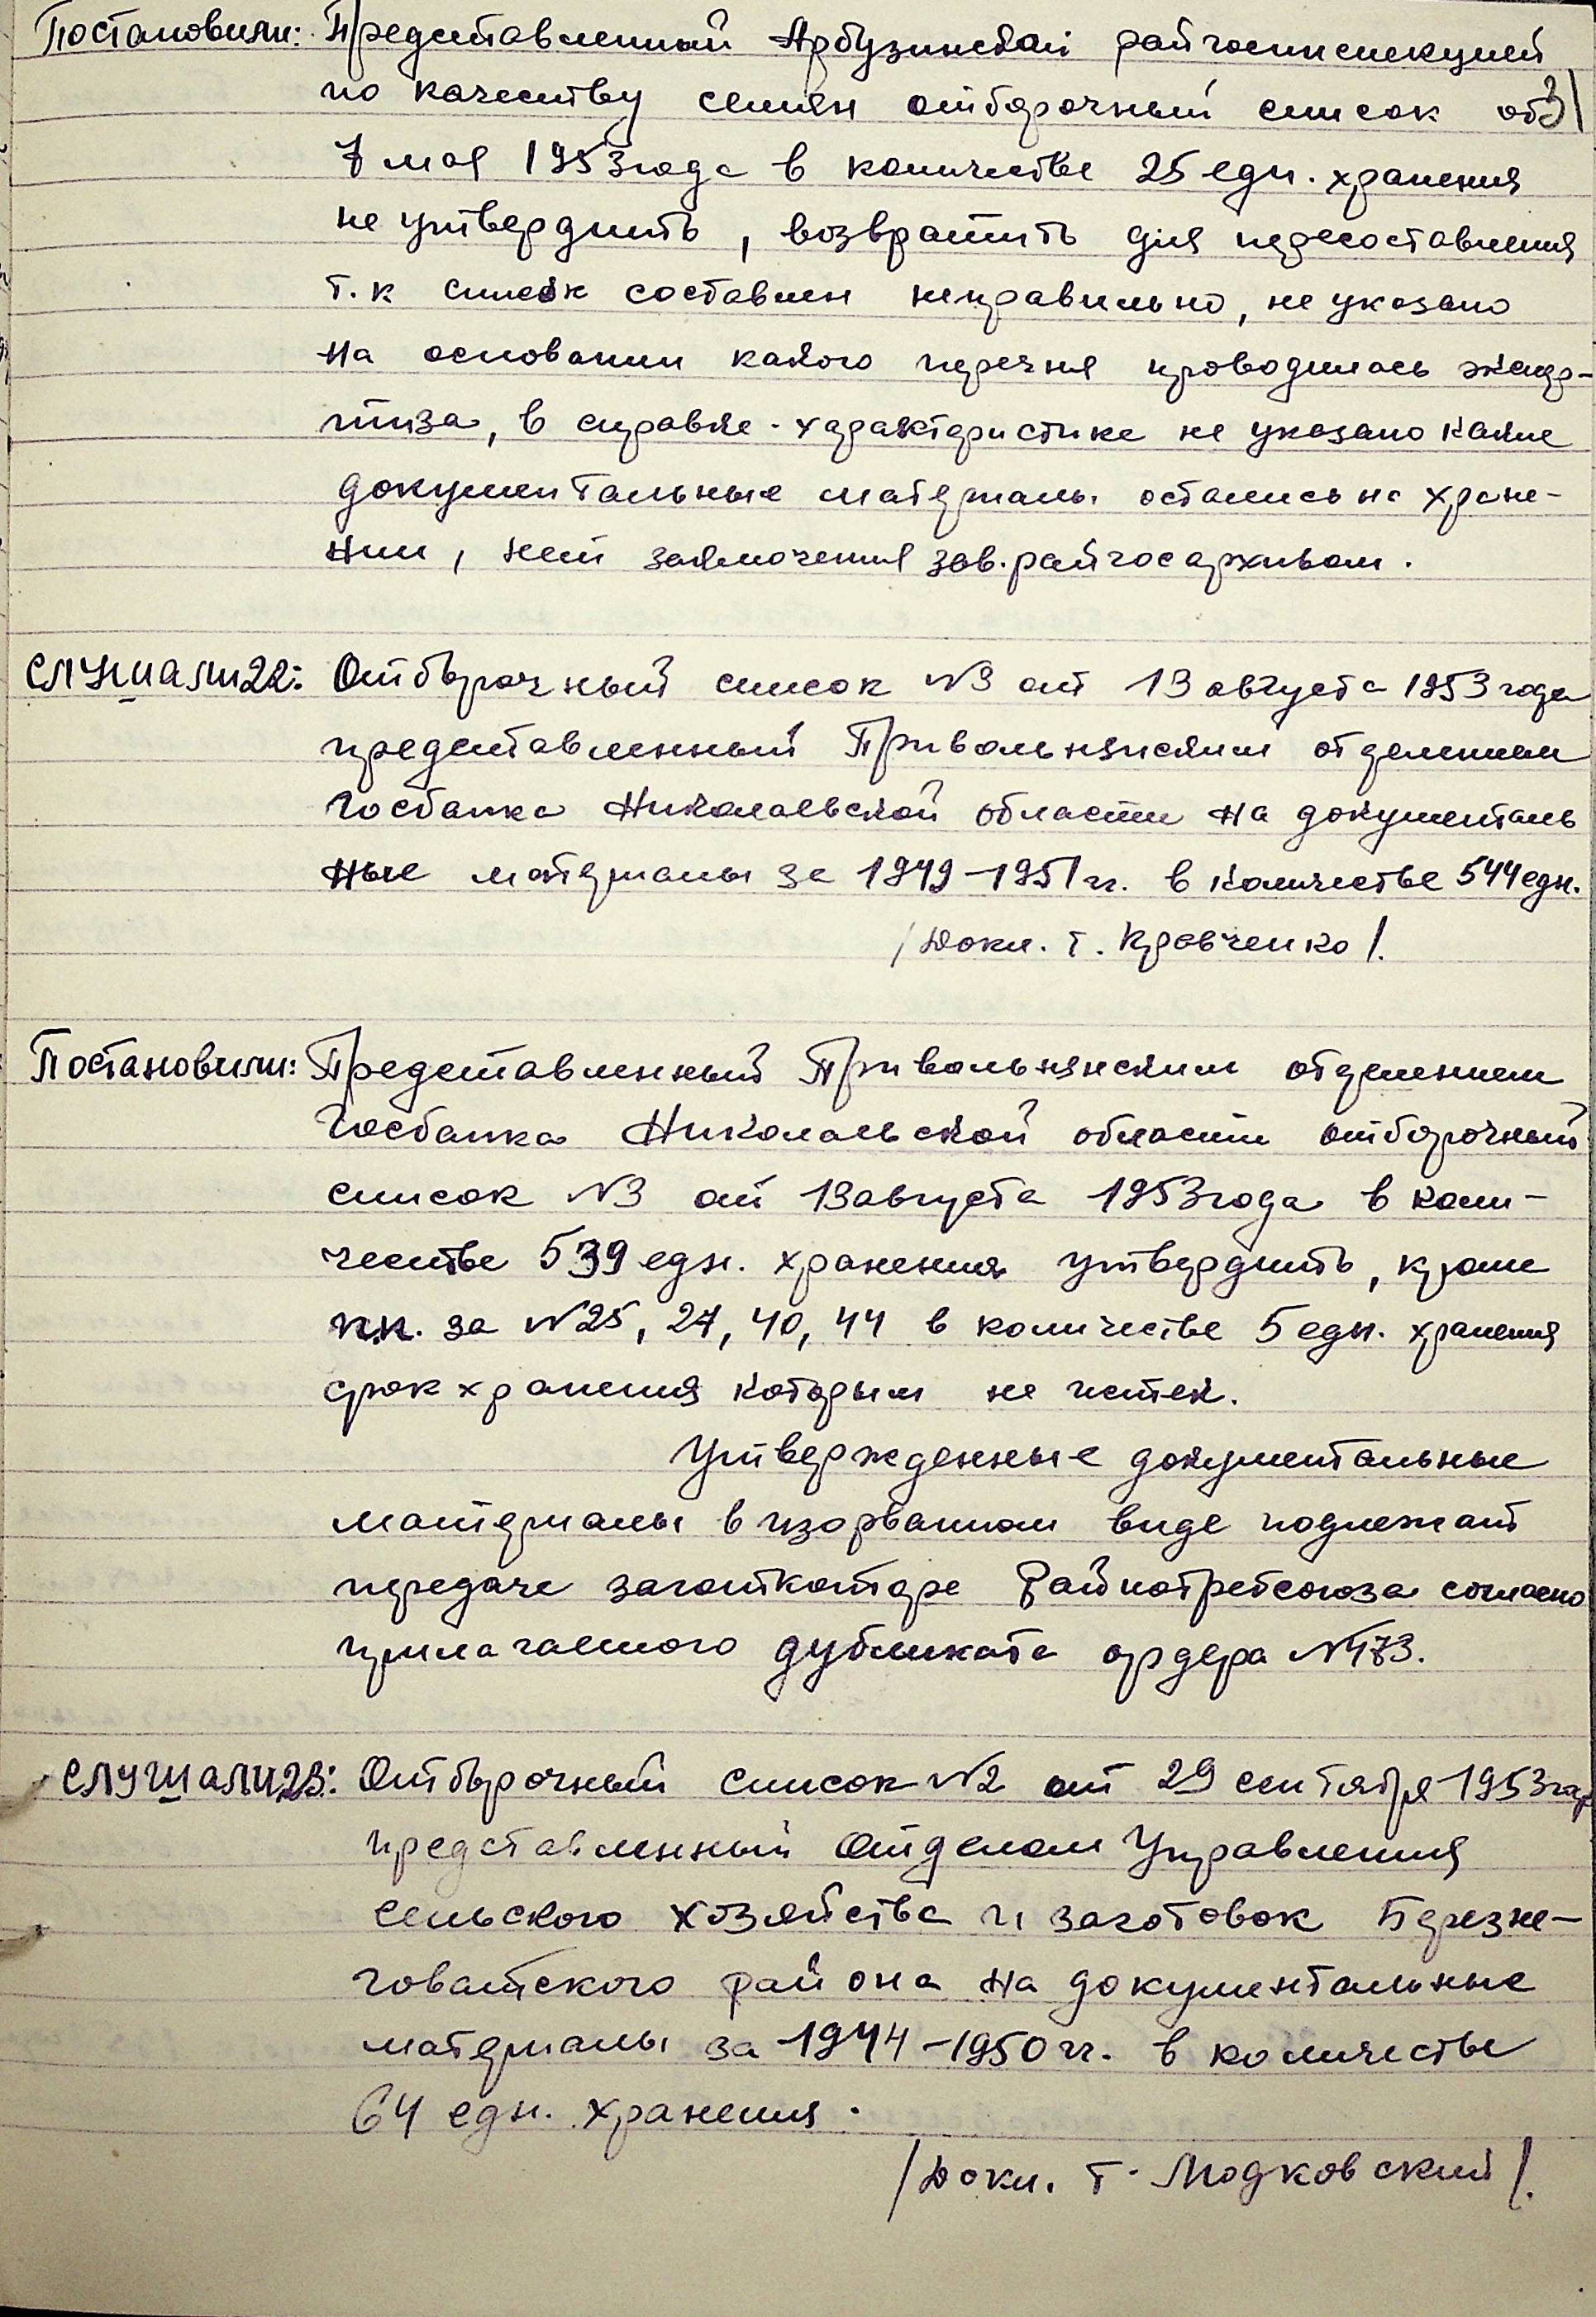 Постановили: Представленный Арбузинской райгосинспекцией
по качеству семян отборочный список от
7 мая 1953 года в количестве 25 едн. хранения
не утвердить, возвратить для пересоставления
т.к список составлен неправильно, не указано
на основании какого перечня проводилась экспер-
тиза, в справке-характеристике не указано какие
документальные материалы остались на хране-
нии, нет заключения зав.райгосархивом.
Слушали 22: Отборочный список №3 от 13 августа 1953 года
представленный Привольнянским отделением
Госбанка Николаевской области на документаль
ные материалы за 1949-1951 гг. в количестве 544 едн.
/Докл. т. Кравченко/.
Постановили: Представленный Привольнянским отделением
Госбанка Николаевской области отборочный
список №3 от 13 августа 1953 года в коли-
честве 539 едн. хранения утвердить, кроме
п.п. за №25, 27, 40, 44 в количестве 5 едн. хранения
срок хранения которым не истек.
Утвержденные документальные
материалы в изорванном виде подлежат
передаче заготконторе Райпотребсоюза согласно
прилагаемого дубликата ордера №173.
Слушали 23: Отборочный список №2 от 29 сентября 1953 года
представленный Отделом Управления
сельского хозяйства и заготовок Березне-
говатского района на документальные
материалы за 1944-1950 гг. в количестве
64 едн. хранения.
/Докл. т. Модковский/.